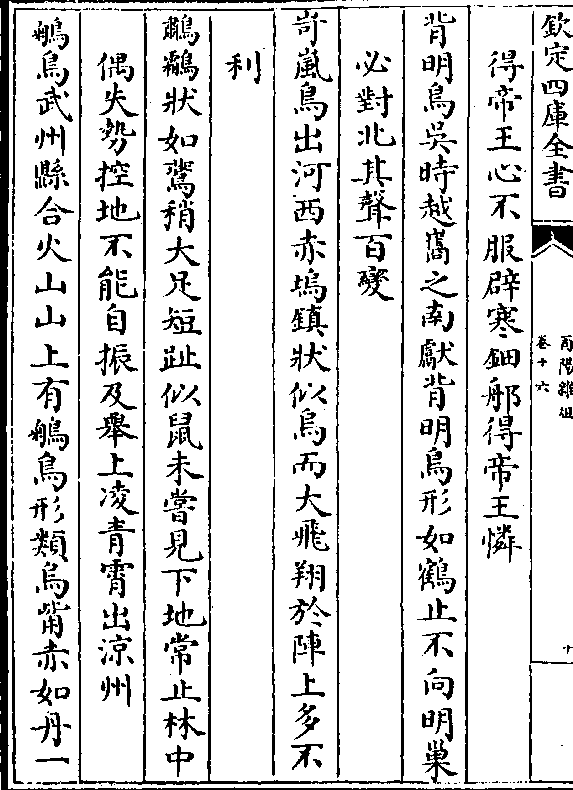 欽定四庫全書
酉陽雜俎
卷十六
十
得帝王心不服辟寒鈿那得帝王憐
背明鳥吳時越巂之南獻背明鳥形如鶴止不向明巢
必對北其聲百變
岢嵐鳥出河西赤塢鎮狀似烏而大飛翔於陣上多不
利
鷫鸘狀如鴽稍大足短趾似鼠未嘗見下地常止林中
偶失勢控地不能自振及舉上凌青霄出涼州
鳥武州縣合火山山上有鳥形類烏觜赤如丹一